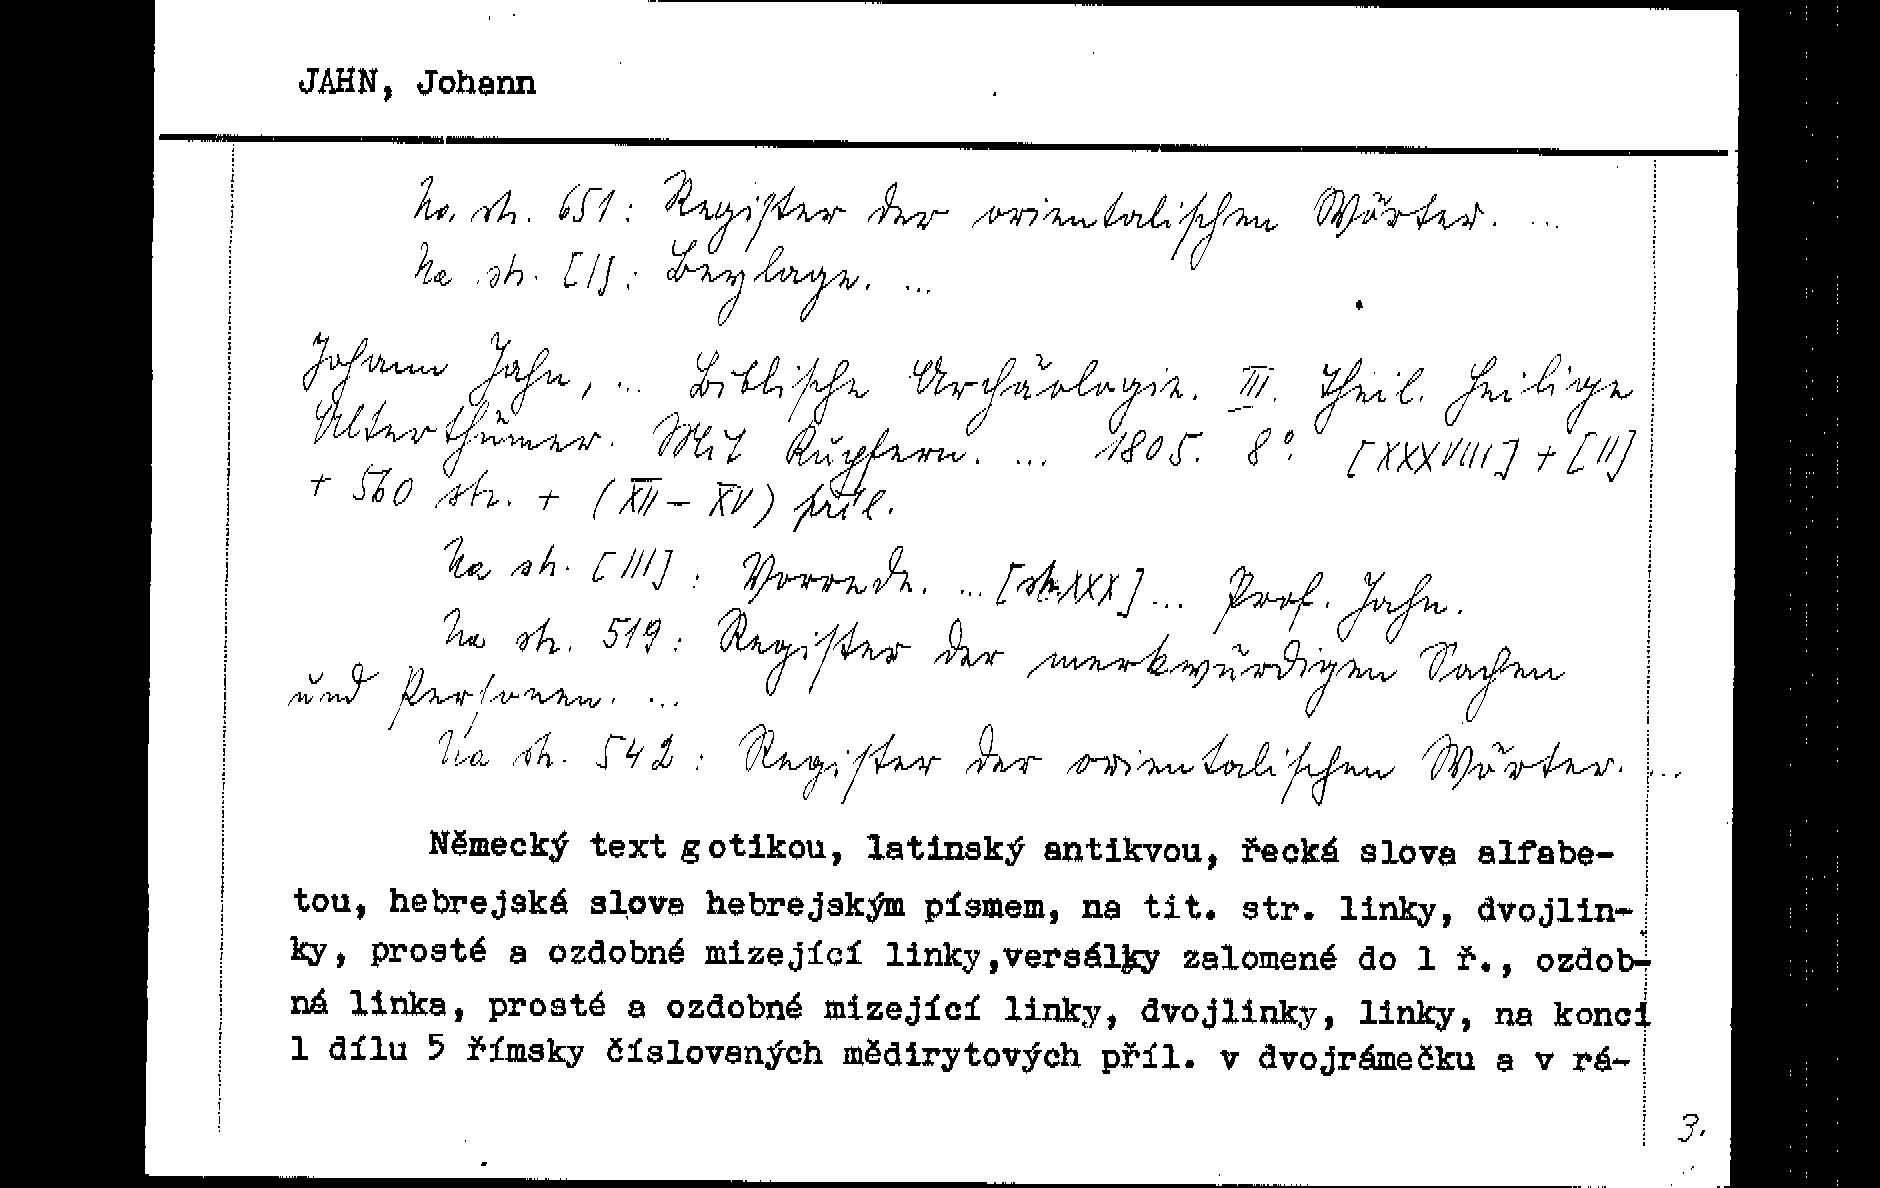 JAHN, Johann
Na str. 651: Register der orientalischen Wörter. ...
Na str. [1]: Beylage. ...
Johann Jahn, ... Biblische Archäologie. III. Theil. Heilige
Alterthümer. Mit Kupfern. ... 1805. 8°. [XXXVIII] + [II]
+ 560 str. + (XII - XV) příl.
Na str. [III]: Vorrede. ... [str. XXX] ... Prof. Jahn.
Na str. 519: Register der merkwürdigen Sachen
und Personen. ...
Na str. 542: Register der orientalischen Wörter. ...
Německý text gotikou, latinský antikvou, řecká slova alfabe-
tou, hebrejská slova hebrejským písmem, na tit. str. linky, dvojlin-
ky, prosté a ozdobné mizející linky,versálky zalomené do 1 ř., ozdob-
ná linka, prosté a ozdobné mizející linky, dvojlinky, linky, na konci
1 dílu 5 římsky číslovaných mědirytových příl. v dvojrámečku a v rá-
3.